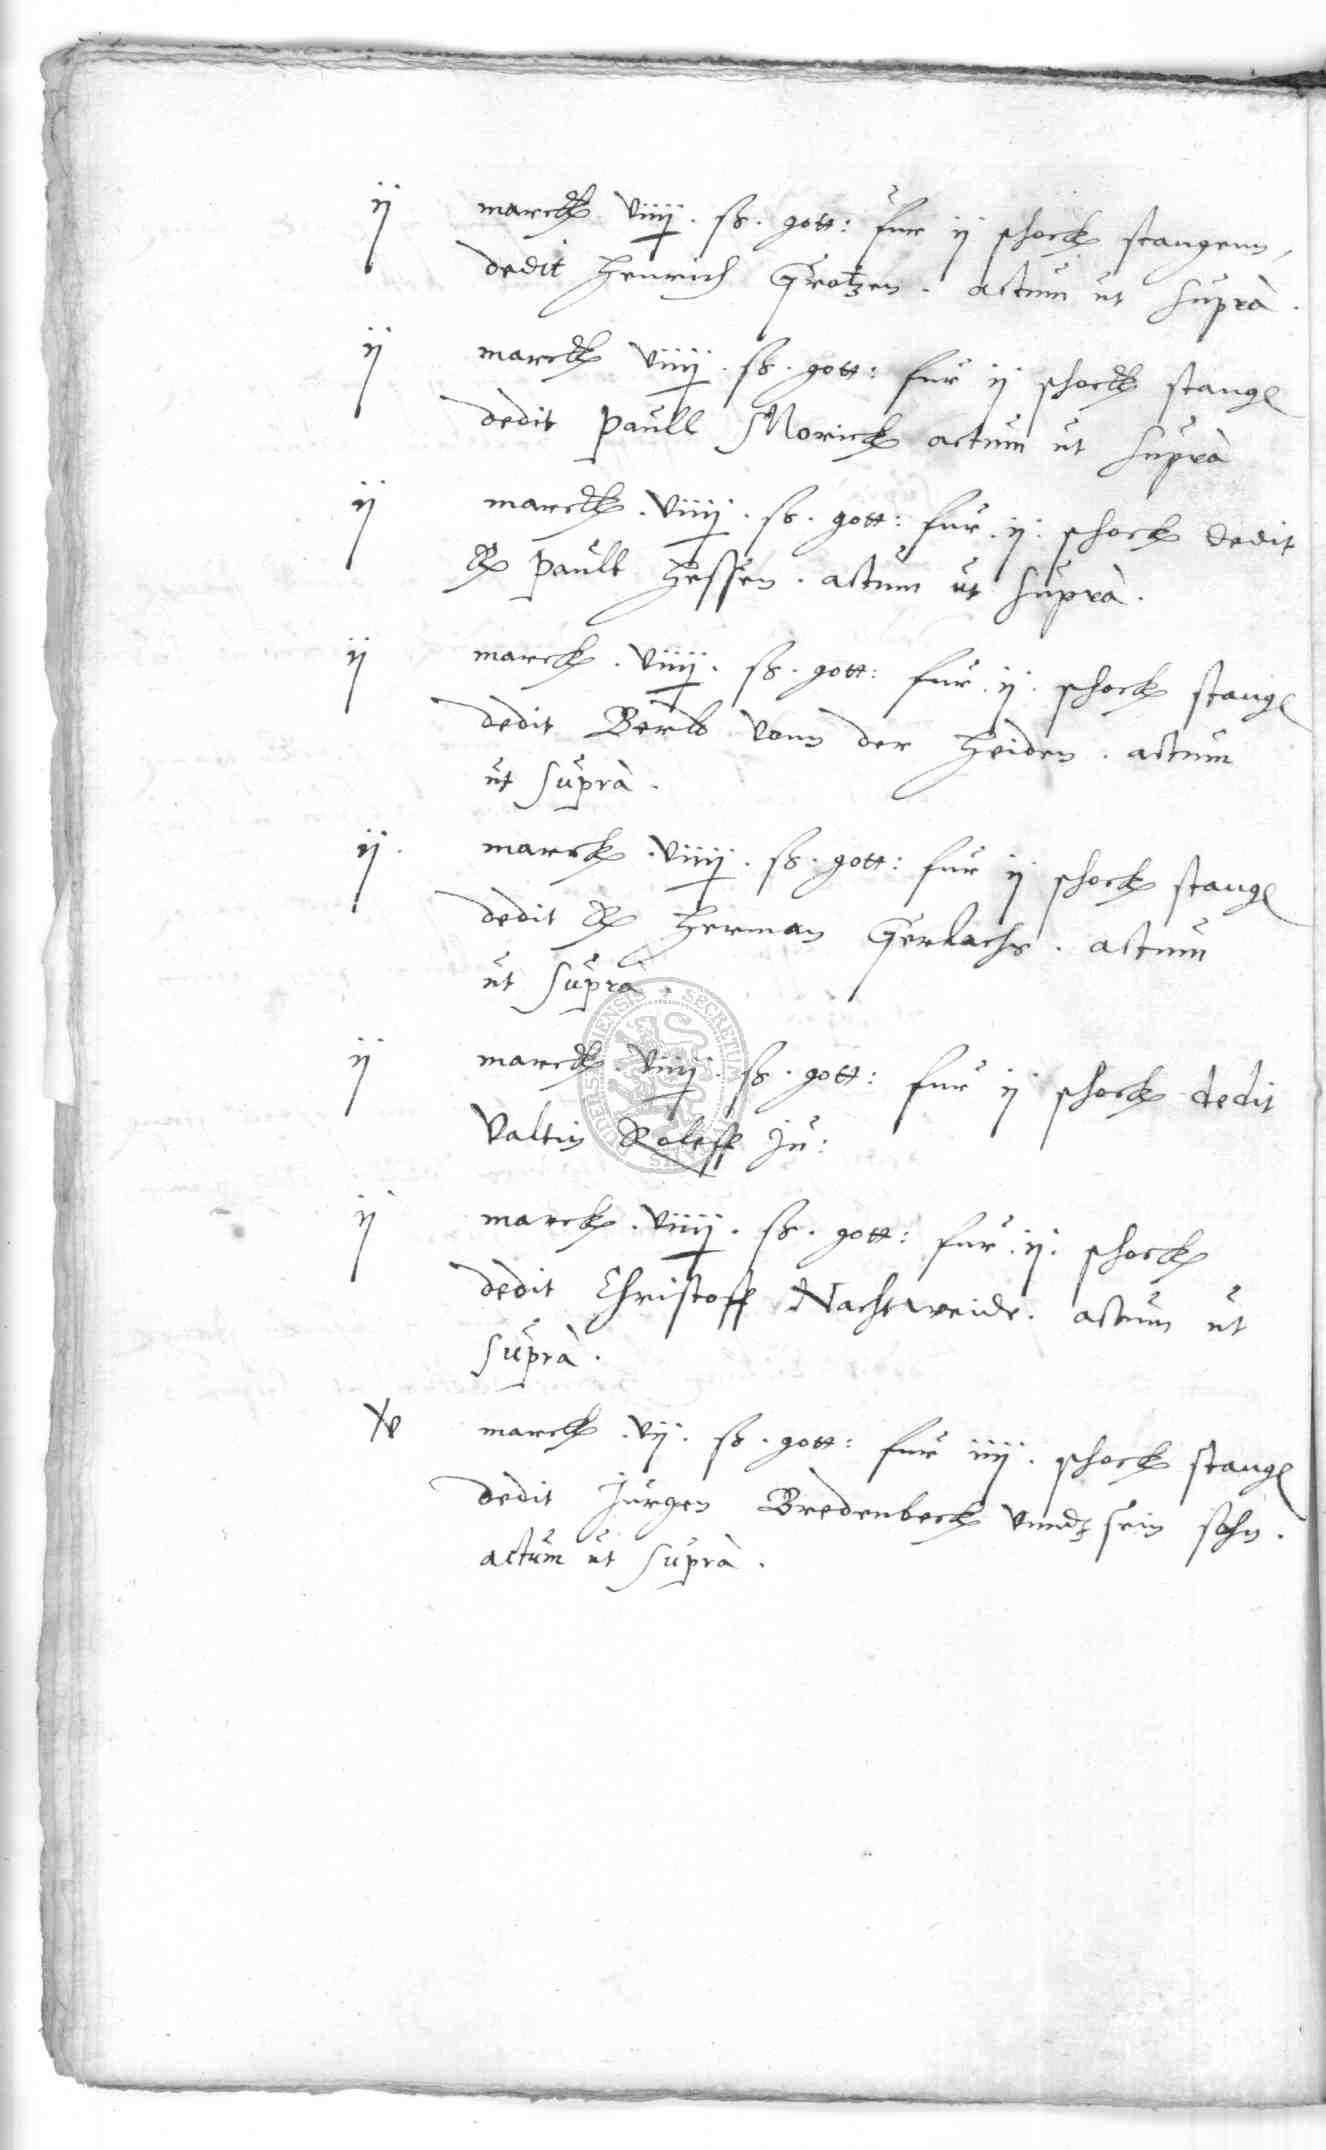 ij marck viiij . ß . gott: fur ij schock stangenn,
dedit Henrich Grotzen . actum ut supra .
ij marck viiij . ß . gott: fur ij schock stang
dedit Paull Morick actum ut supra
ij marck . viiij . ß . gott: fur . ij . schock dedit
Paull Hessen . actum ut supra .
ij marck . viiij . ß . gott: fur . ij . schock stang
dedit vonn der Heiden . actum
ut supra .
ij . marck . viiij . ß . gott: fur ij schock stang
dedit Herman Gerlachs . actum
ut supra .
ij marck . viiij . ß . gott: fur ij schock dedit
Valtin Roleff Ju:
ij marck . viiij . ß . gott: fur . ij . schock
dedit Christoff Nachtweide . actum ut
supra .
marck . vij . ß . gott: fur iiij . schock stang
dedit Jurgen Bredenbeck vnndt sein sohn .
actum ut supra .
SECRETUM